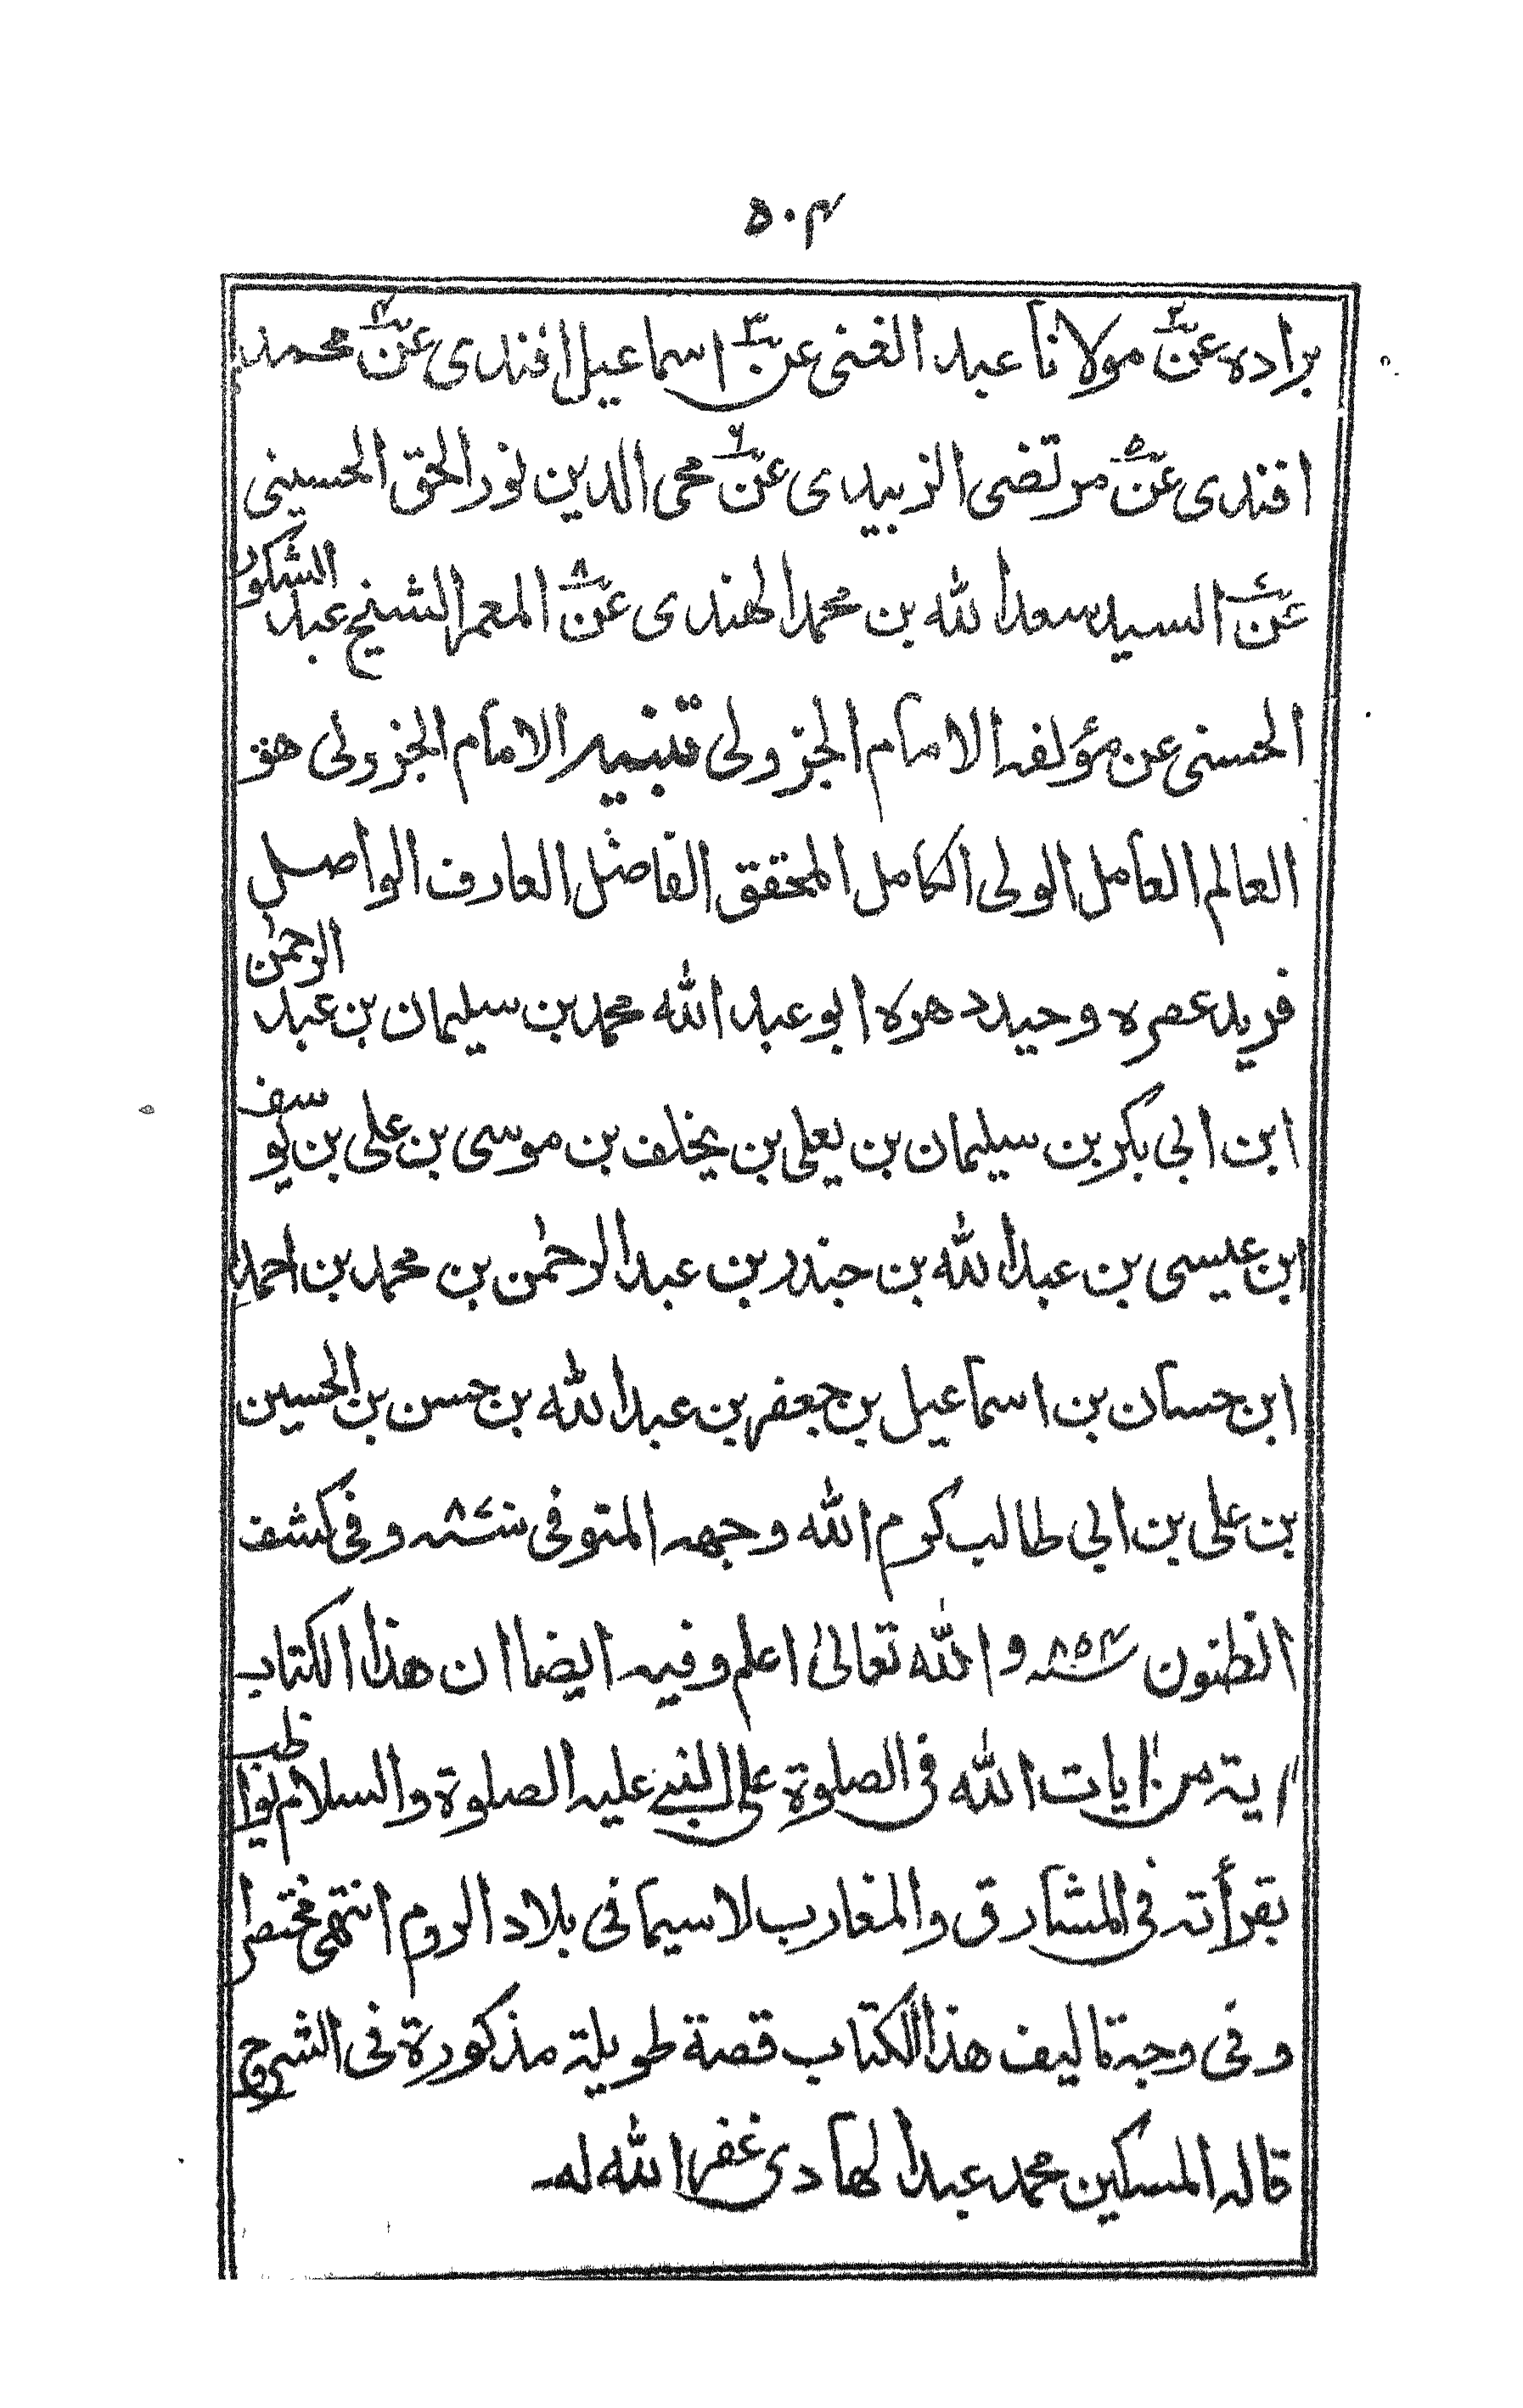 ۵۰۴
براده عن۲ مولانا عبد الغنی عن۳ اسماعیل افندی عن۴ محمد
افندی عن۵ مرتضی الزبیدی عن۶ محی الدین نور الحق الحسینی
عن۷ السید سعد الله بن محمد الهندی عن۸ المعمر الشیخ عبد الشکور
الحسنی عن مؤلفه الامام الجزولی تنبیه الامام الجزولی هو
العالم العامل الولی الکامل المحقق الفاضل العارف الواصل
فرید عصره وحید دهره ابو عبد الله محمد بن سلیمان بن عبد الرحمٰن
ابن ابی بکر بن سلیمان بن یعلی بن یخلف بن موسی بن علی بن یوسف
ابن عیسی بن عبد الله بن جندر بن عبد الرحمٰن بن محمد بن احمد
ابن حسان بن اسماعیل بن جعفر بن عبد الله بن حسن بن الحسین
بن علی بن ابی طالب کرم الله وجهه المتوفی سنه ۸۷ وفی کشف
الظنون سنه ۸۵۴ والله تعالیٰ اعلم وفیه ایضا ان هذا الکتاب
اٰیة من اٰیات الله فی الصلوة علی النبی علیه الصلوة والسلام یواظب
بقرأته فی المشارق والمغارب لا سیما فی بلاد الروم انتهی مختصرا
وفی وجه تالیف هذا الکتاب قصة طویلة مذکورة فی الشروح
قاله المسکین محمد عبد الهادی غفر الله له